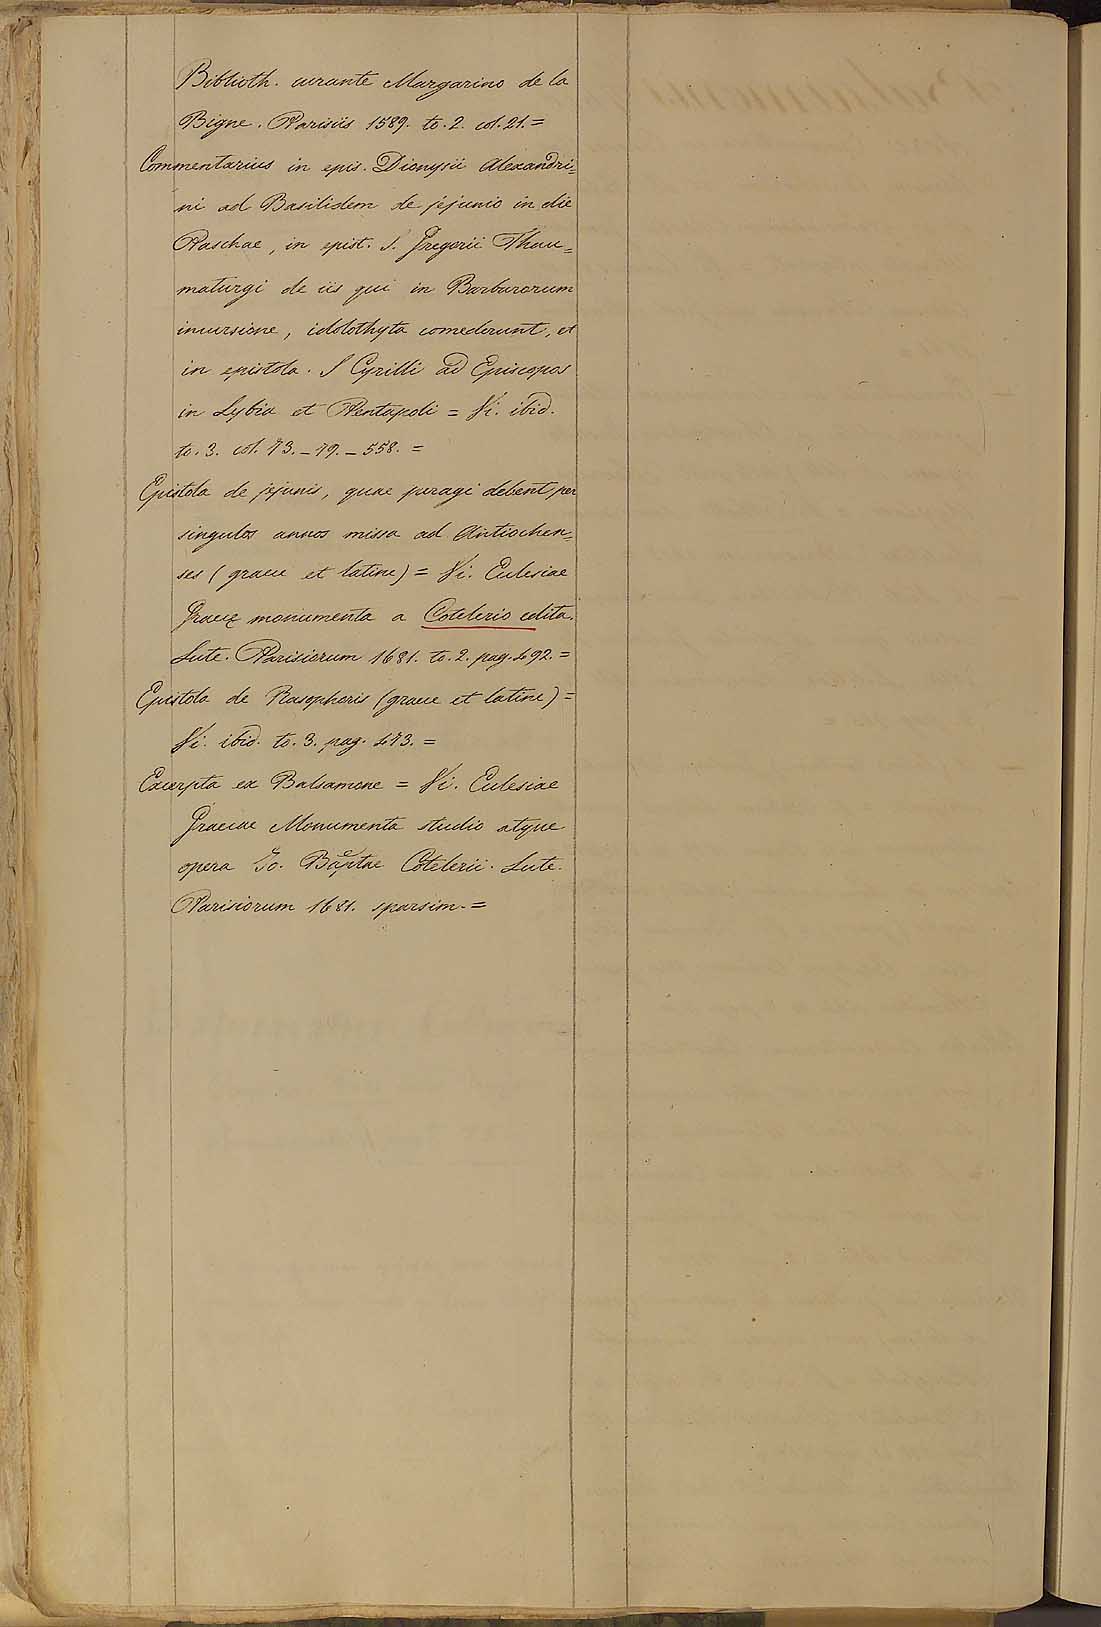 Biblioth. curante Margarino de la
Bigne. Parisiis 1589. to. 2. col. 21. =
Commentarius in epis. Dionysii Alexandri=
ni ad Basilidem de jejunio in die
Paschae, in epist. S. Gregorii Thau=
maturgi de iis qui in Barbarorum
incursione, idolothyta comederunt, et
in epistola. S Cyrilli ad Episcopos
in Lybia et Pentapoli = Vi. ibid.
to. 3. col. 73. _ 79. _ 558. =
Epistola de jejunis, quae peragi debent per
singulos annos missa ad Antiochen=
ses (graece et latine) = Vi. Eclesiae
Graecę monumenta a Cotelerio edita.
Lute. Parisiorum 1681. to. 2. pag. 492. =
Epistola de Rasophoris (graece et latine) =
Vi. ibid. to. 3. pag. 473. =
Excerpta ex Balsamone = Vi. Eclesiae
Graecae Monumenta studio atque
opera Jo. Baptae Cotelerii. Lute.
Parisiorum 1681. sparsim. =